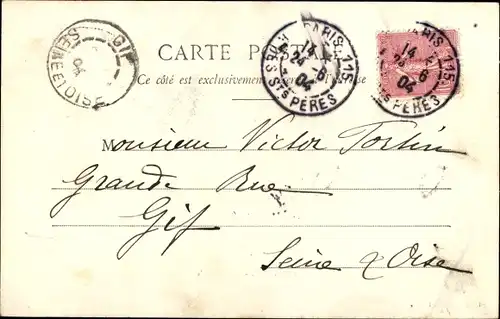 GIF
SEINE ET OISE
04
CARTE POSTALE
Ce côté est exclusivement réservé à l'adresse
PARIS. 115
14
24 6
04
R. DES Sts PÈRES
PARIS. 115
14
6
04
PÈRES
Monsieur Victor Tortin
Grande Rue
Gif
Seine & Oise